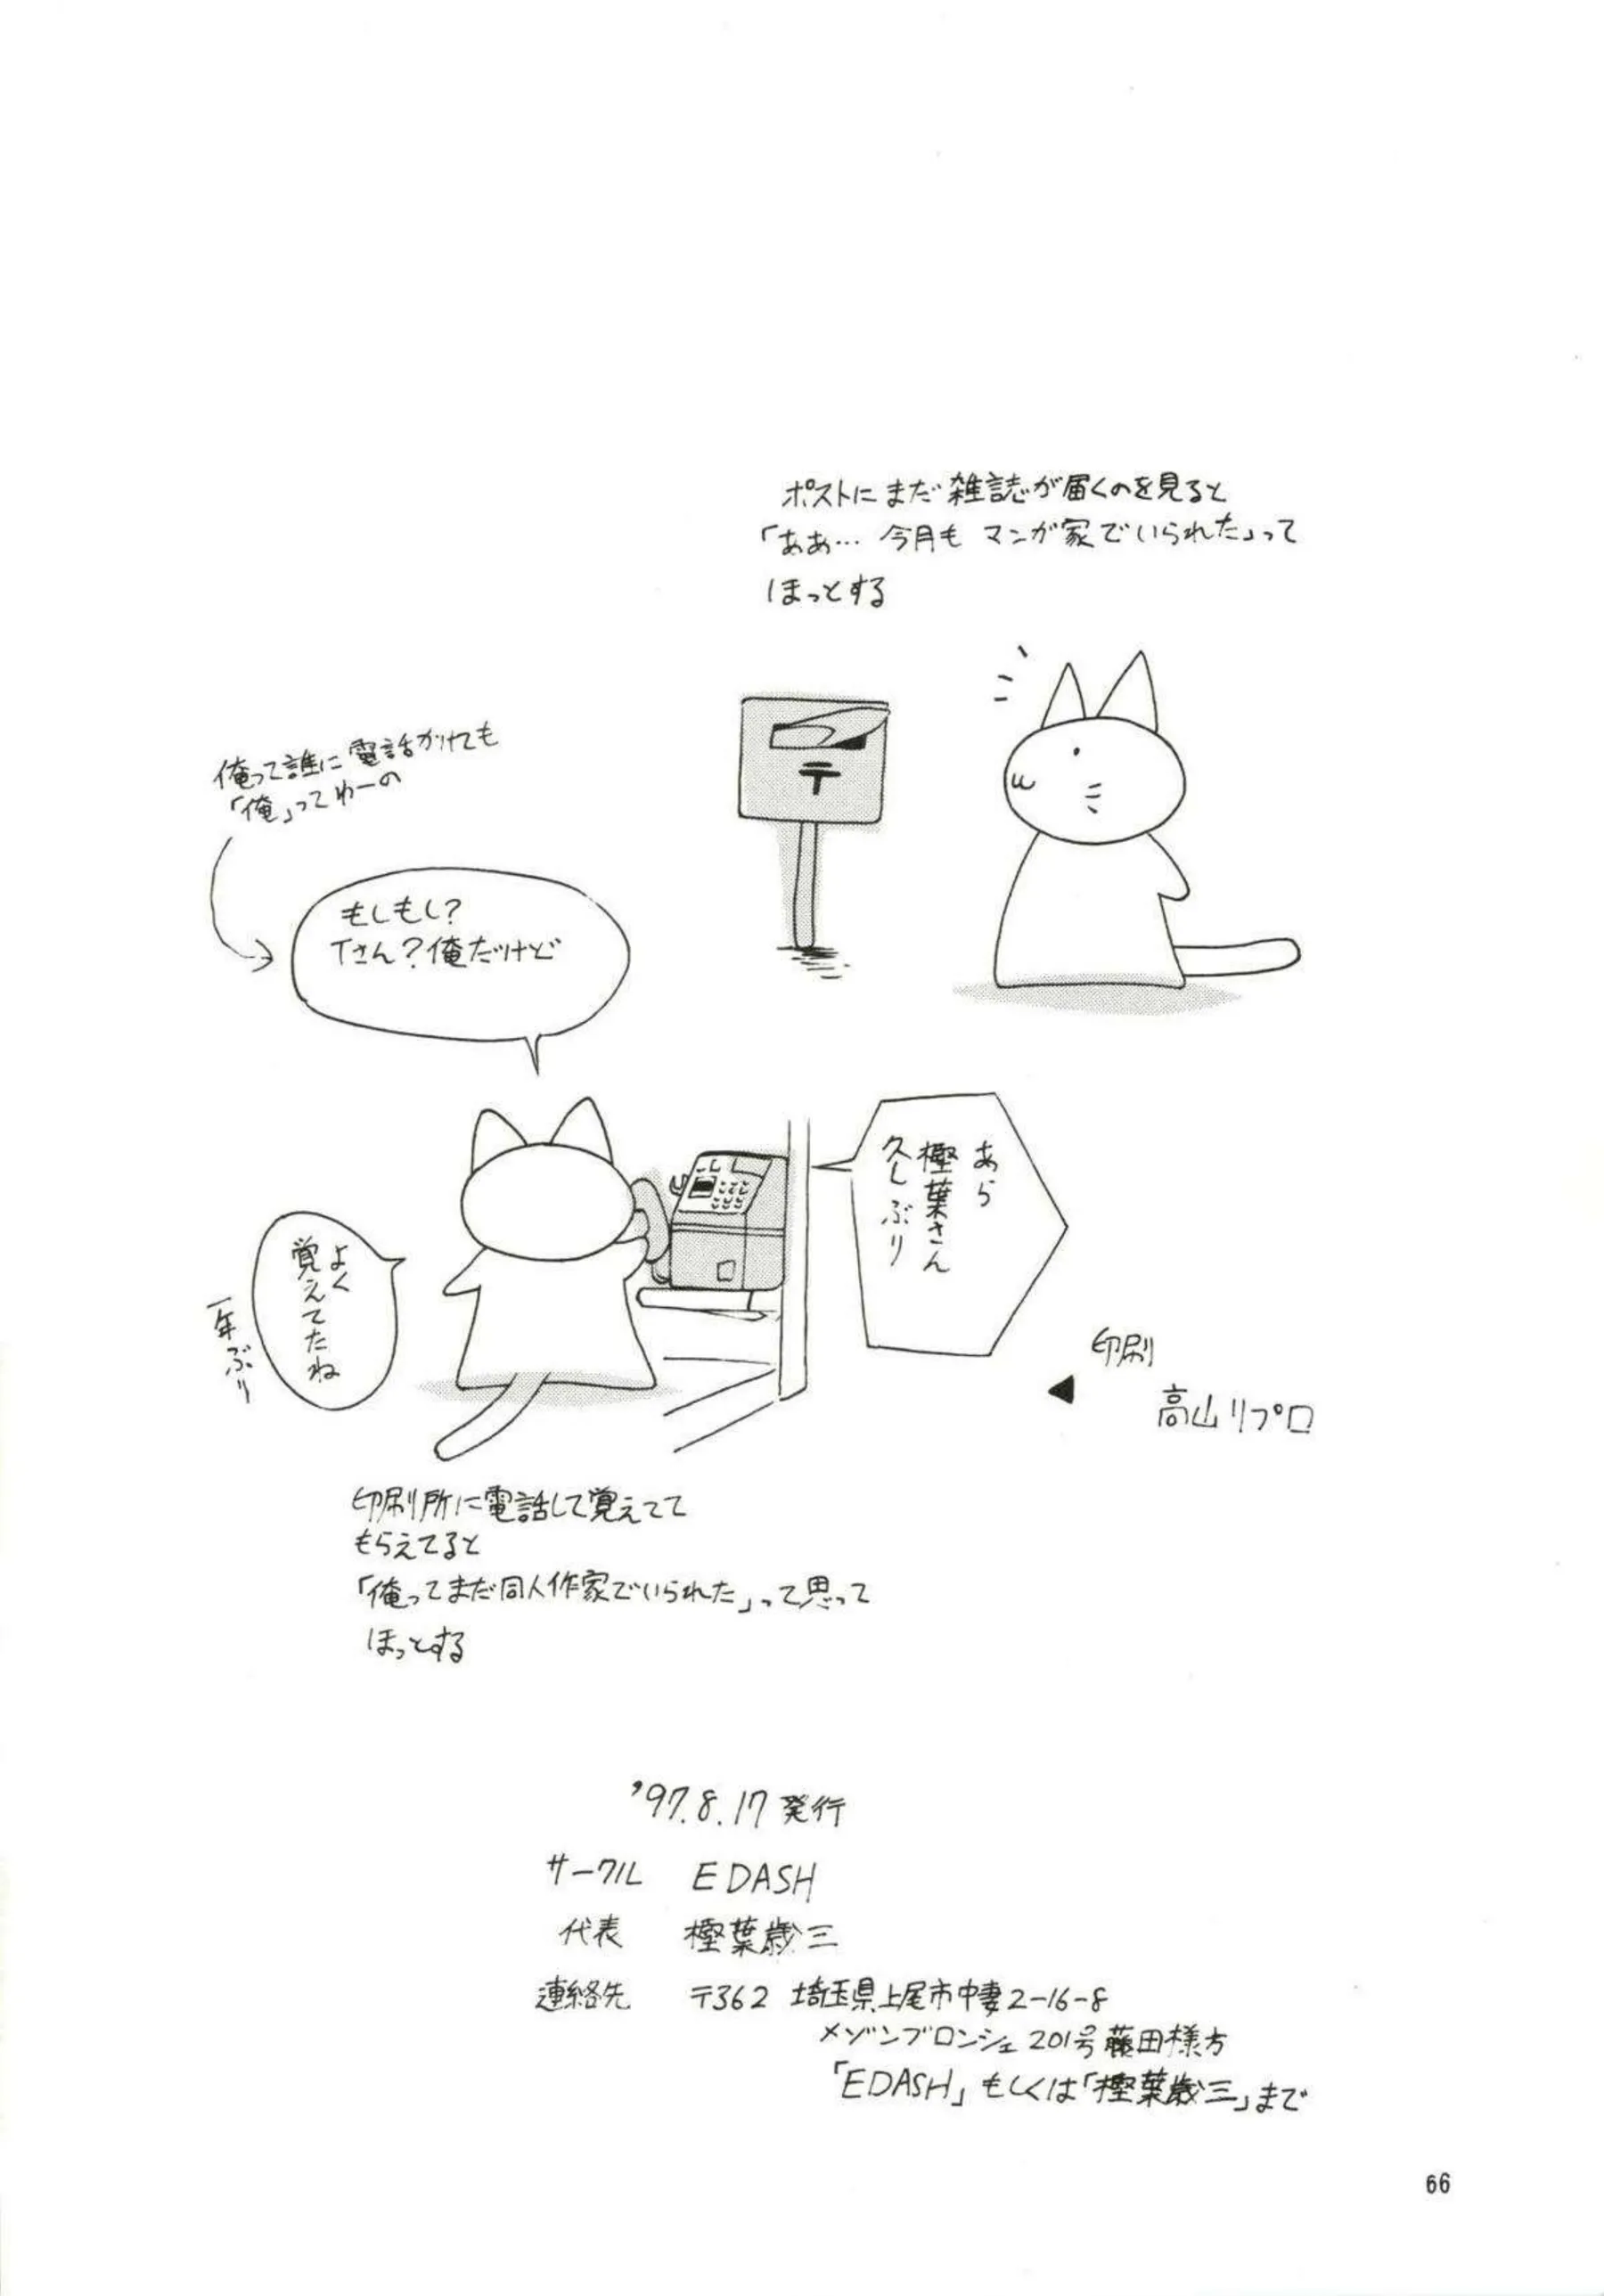 ポストにまだ雑誌が届くのを見ると
「ああ… 今月も マンが家でいられた」って
ほっとする
俺って誰に電話かけても
「俺」ってゆーの
もしもし?
Tさん?俺だけど
あら
樫葉さん
久しぶり
よく
覚えてたね
一年ぶり
印刷所に電話して覚えてて
もらえてると
「俺ってまだ同人作家でいられた」って思って
ほっとする
印刷
高山リプロ
'97.8.17 発行
サークル EDASH
代表 樫葉歳三
連絡先 〒362 埼玉県上尾市中妻2-16-8
メゾンブロンシェ 201号 藤田様方
「EDASH」もしくは「樫葉歳三」まで
66